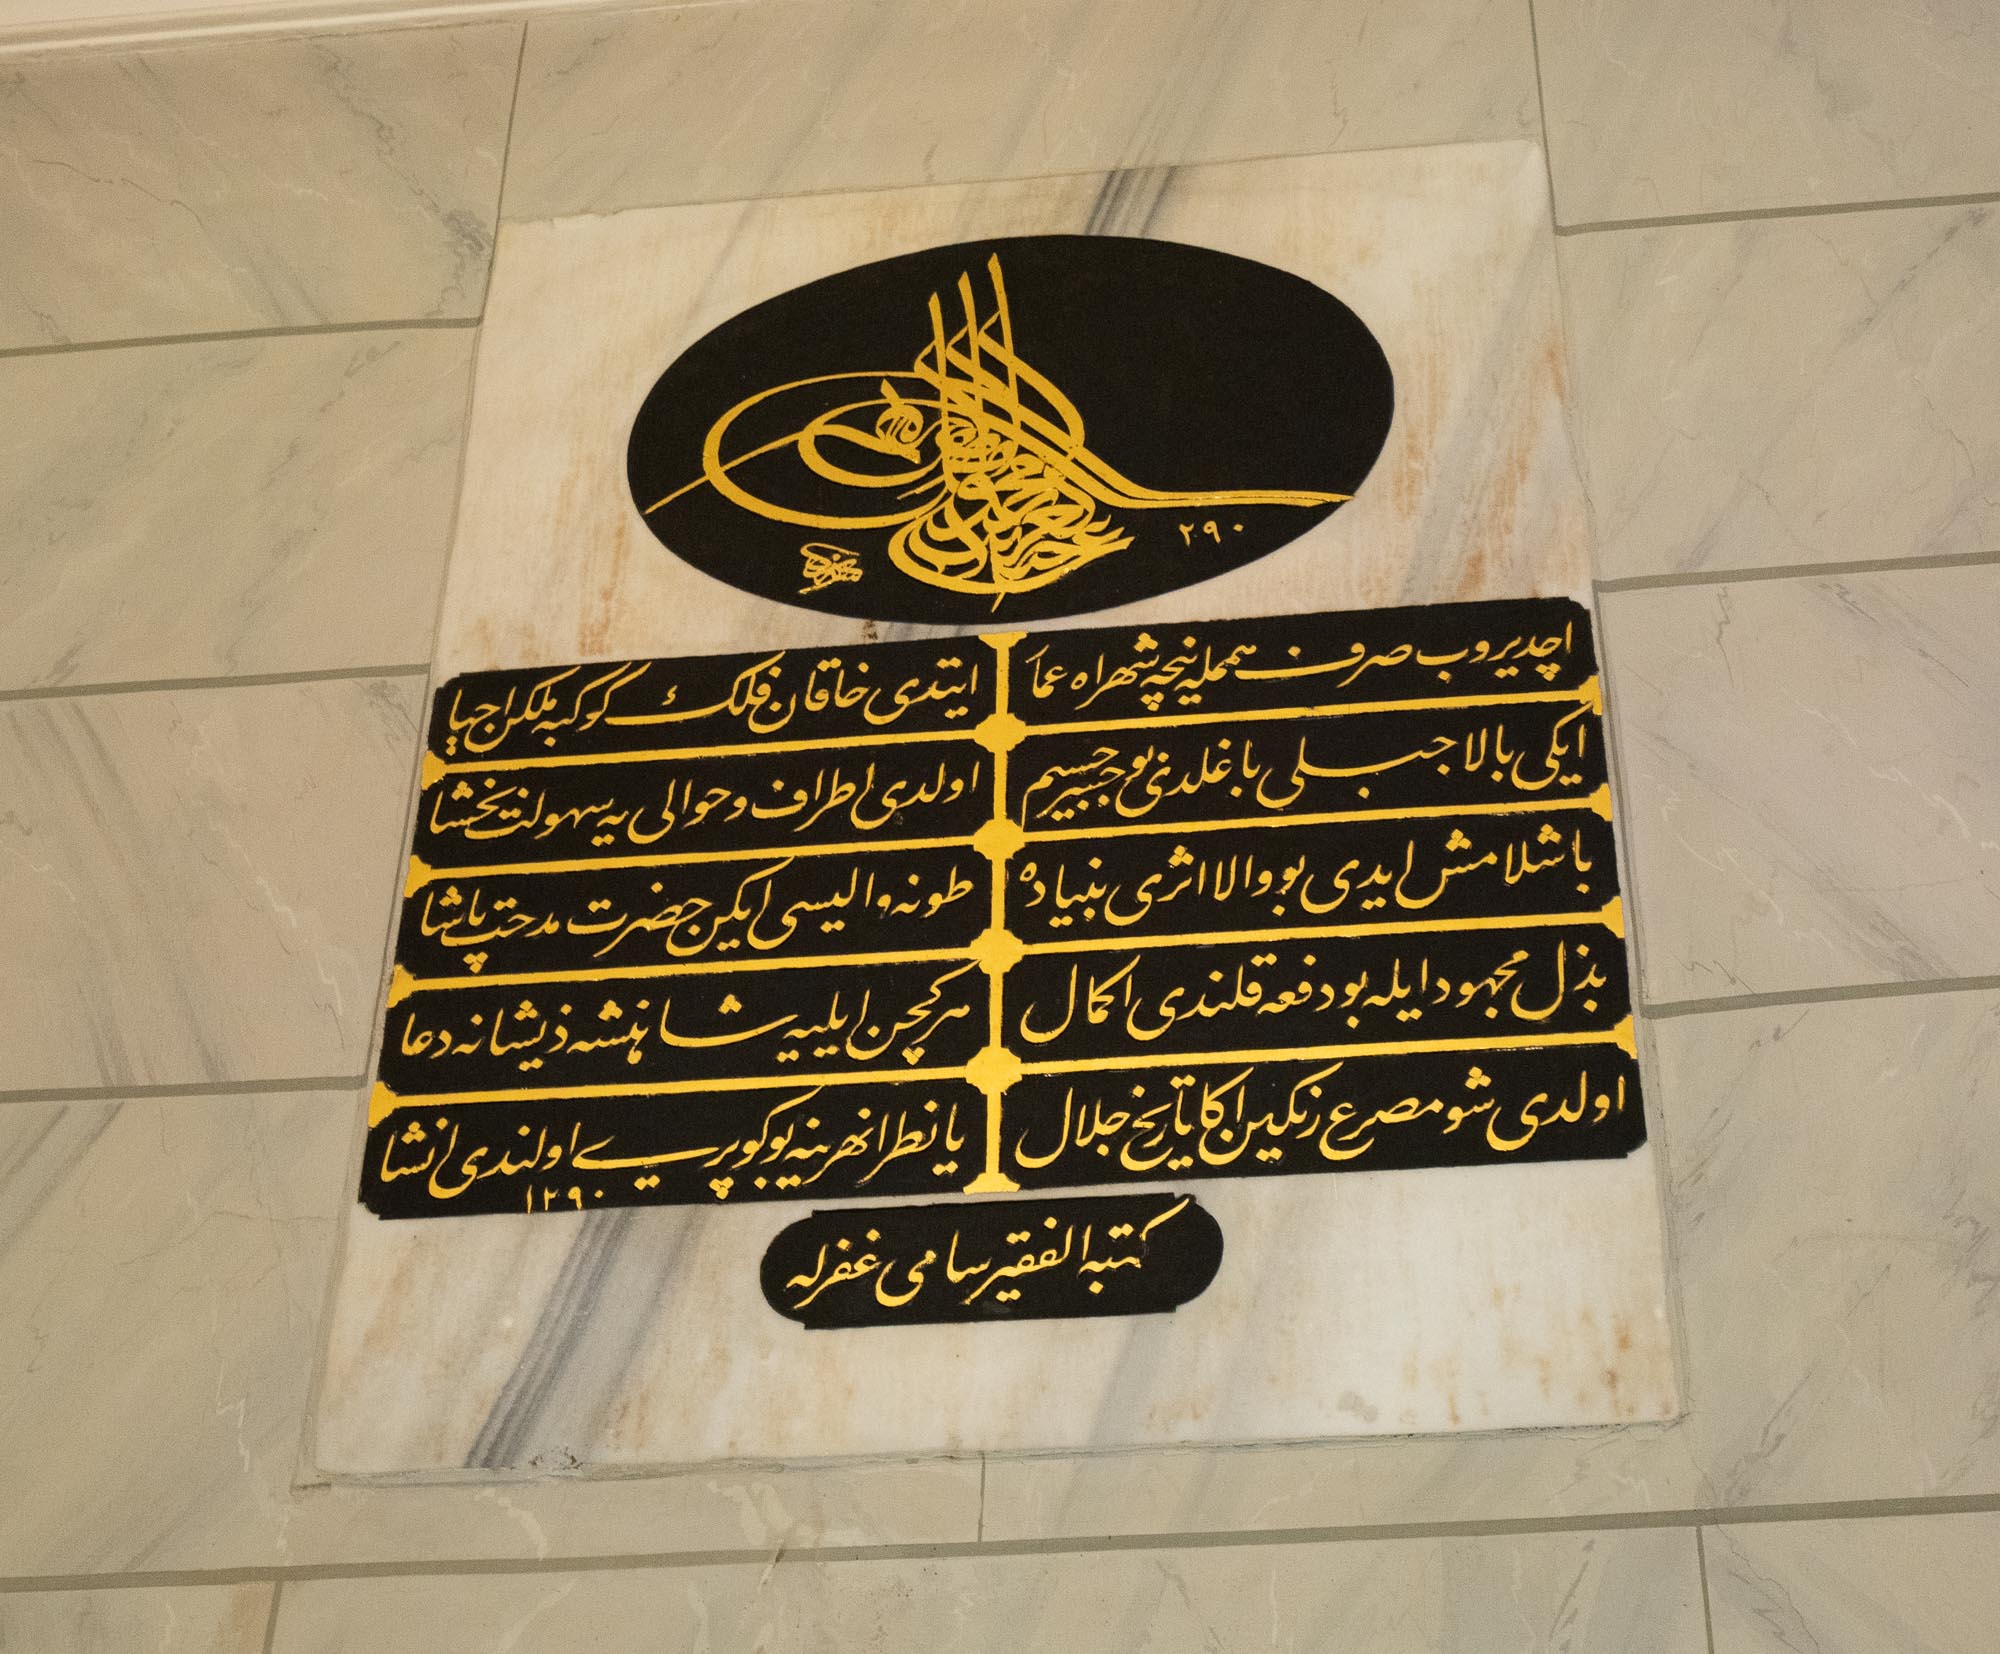 ٢٩٠
اچدیروب صرف همملیه نیچه شهراه عمآ
ایتدی خاقان فلك كوكبه ملكن احیا
ایكی بالا جبلی باغلدی بو جسر جسیم
اولدی اطراف و حوالی یه سهولت بخشا
باشلامش ایدی بو والا اثری بنیاده
طونه والیسی ایكن حضرت مدحت پاشا
بذل مجهود ایله بو دفعه قلندی اكمال
هر كچن ایلیه شاهنشه ذیشانه دعا
اولدی شو مصرع رنكین اكا تاریخ جلال
یانطرا نهرینه بو كوپری اولندی انشا
١٢٩٠
كتبه الفقیر سامی غفرله